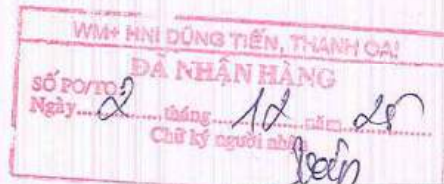 WM+ HNI DŨNG TIẾN, THANH OAI
ĐÃ NHẬN HÀNG
SỐ PO/TO
Ngày 2 tháng 12 năm 25
Chữ ký người nhận